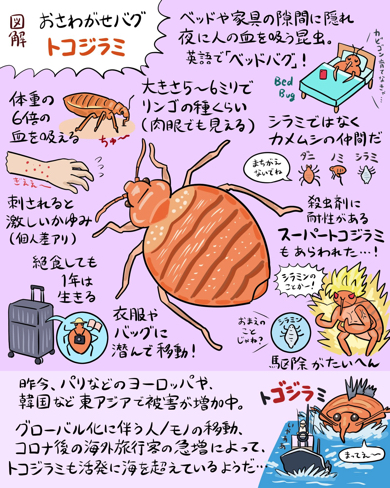 図解
おさわがせバグ
トコジラミ
ベッドや家具の隙間に隠れ
夜に人の血を吸う昆虫。
英語で「ベッドバグ」!
Bed
Bug
体重の
6倍の
血を吸える
ちゅ〜
大きさ5〜6ミリで
リンゴの種くらい
(肉眼でも見える)
シラミではなく
カメムシの仲間だ
まちがえ
ないでね
ダニ
ノミ
シラミ
ぎえぇ〜
刺されると
激しいかゆみ
(個人差アリ)
殺虫剤に
耐性がある
スーパートコジラミ
もあらわれた…!
シラミンの
ことかー!
絶食しても
1年は
生きる
衣服や
バッグに
潜んで移動!
おまえの
こと
じゃね?
シラミン
駆除がたいへん
昨今、パリなどのヨーロッパや、
韓国など東アジアで被害が増加中。
グローバル化に伴う人/モノの移動、
コロナ後の海外旅行客の急増によって、
トコジラミも活発に海を超えているようだ…
トゴジラミ
まってぇ〜